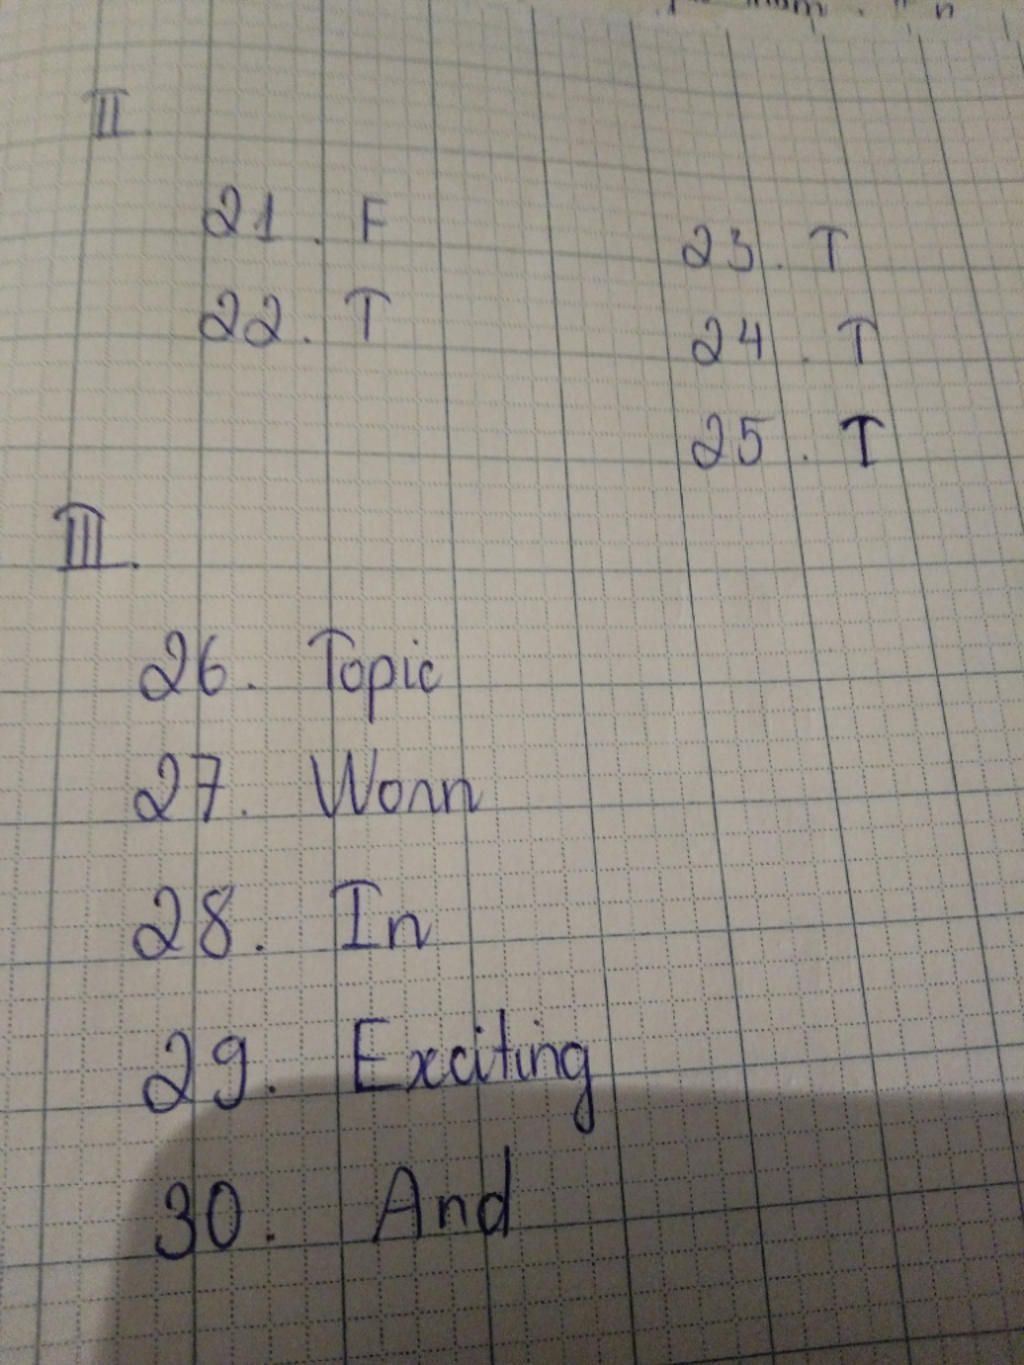 II.
21. F
22. T
23. T
24. T
25. T
III.
26. Topic
27. Worn
28. In
29. Exciting
30. And